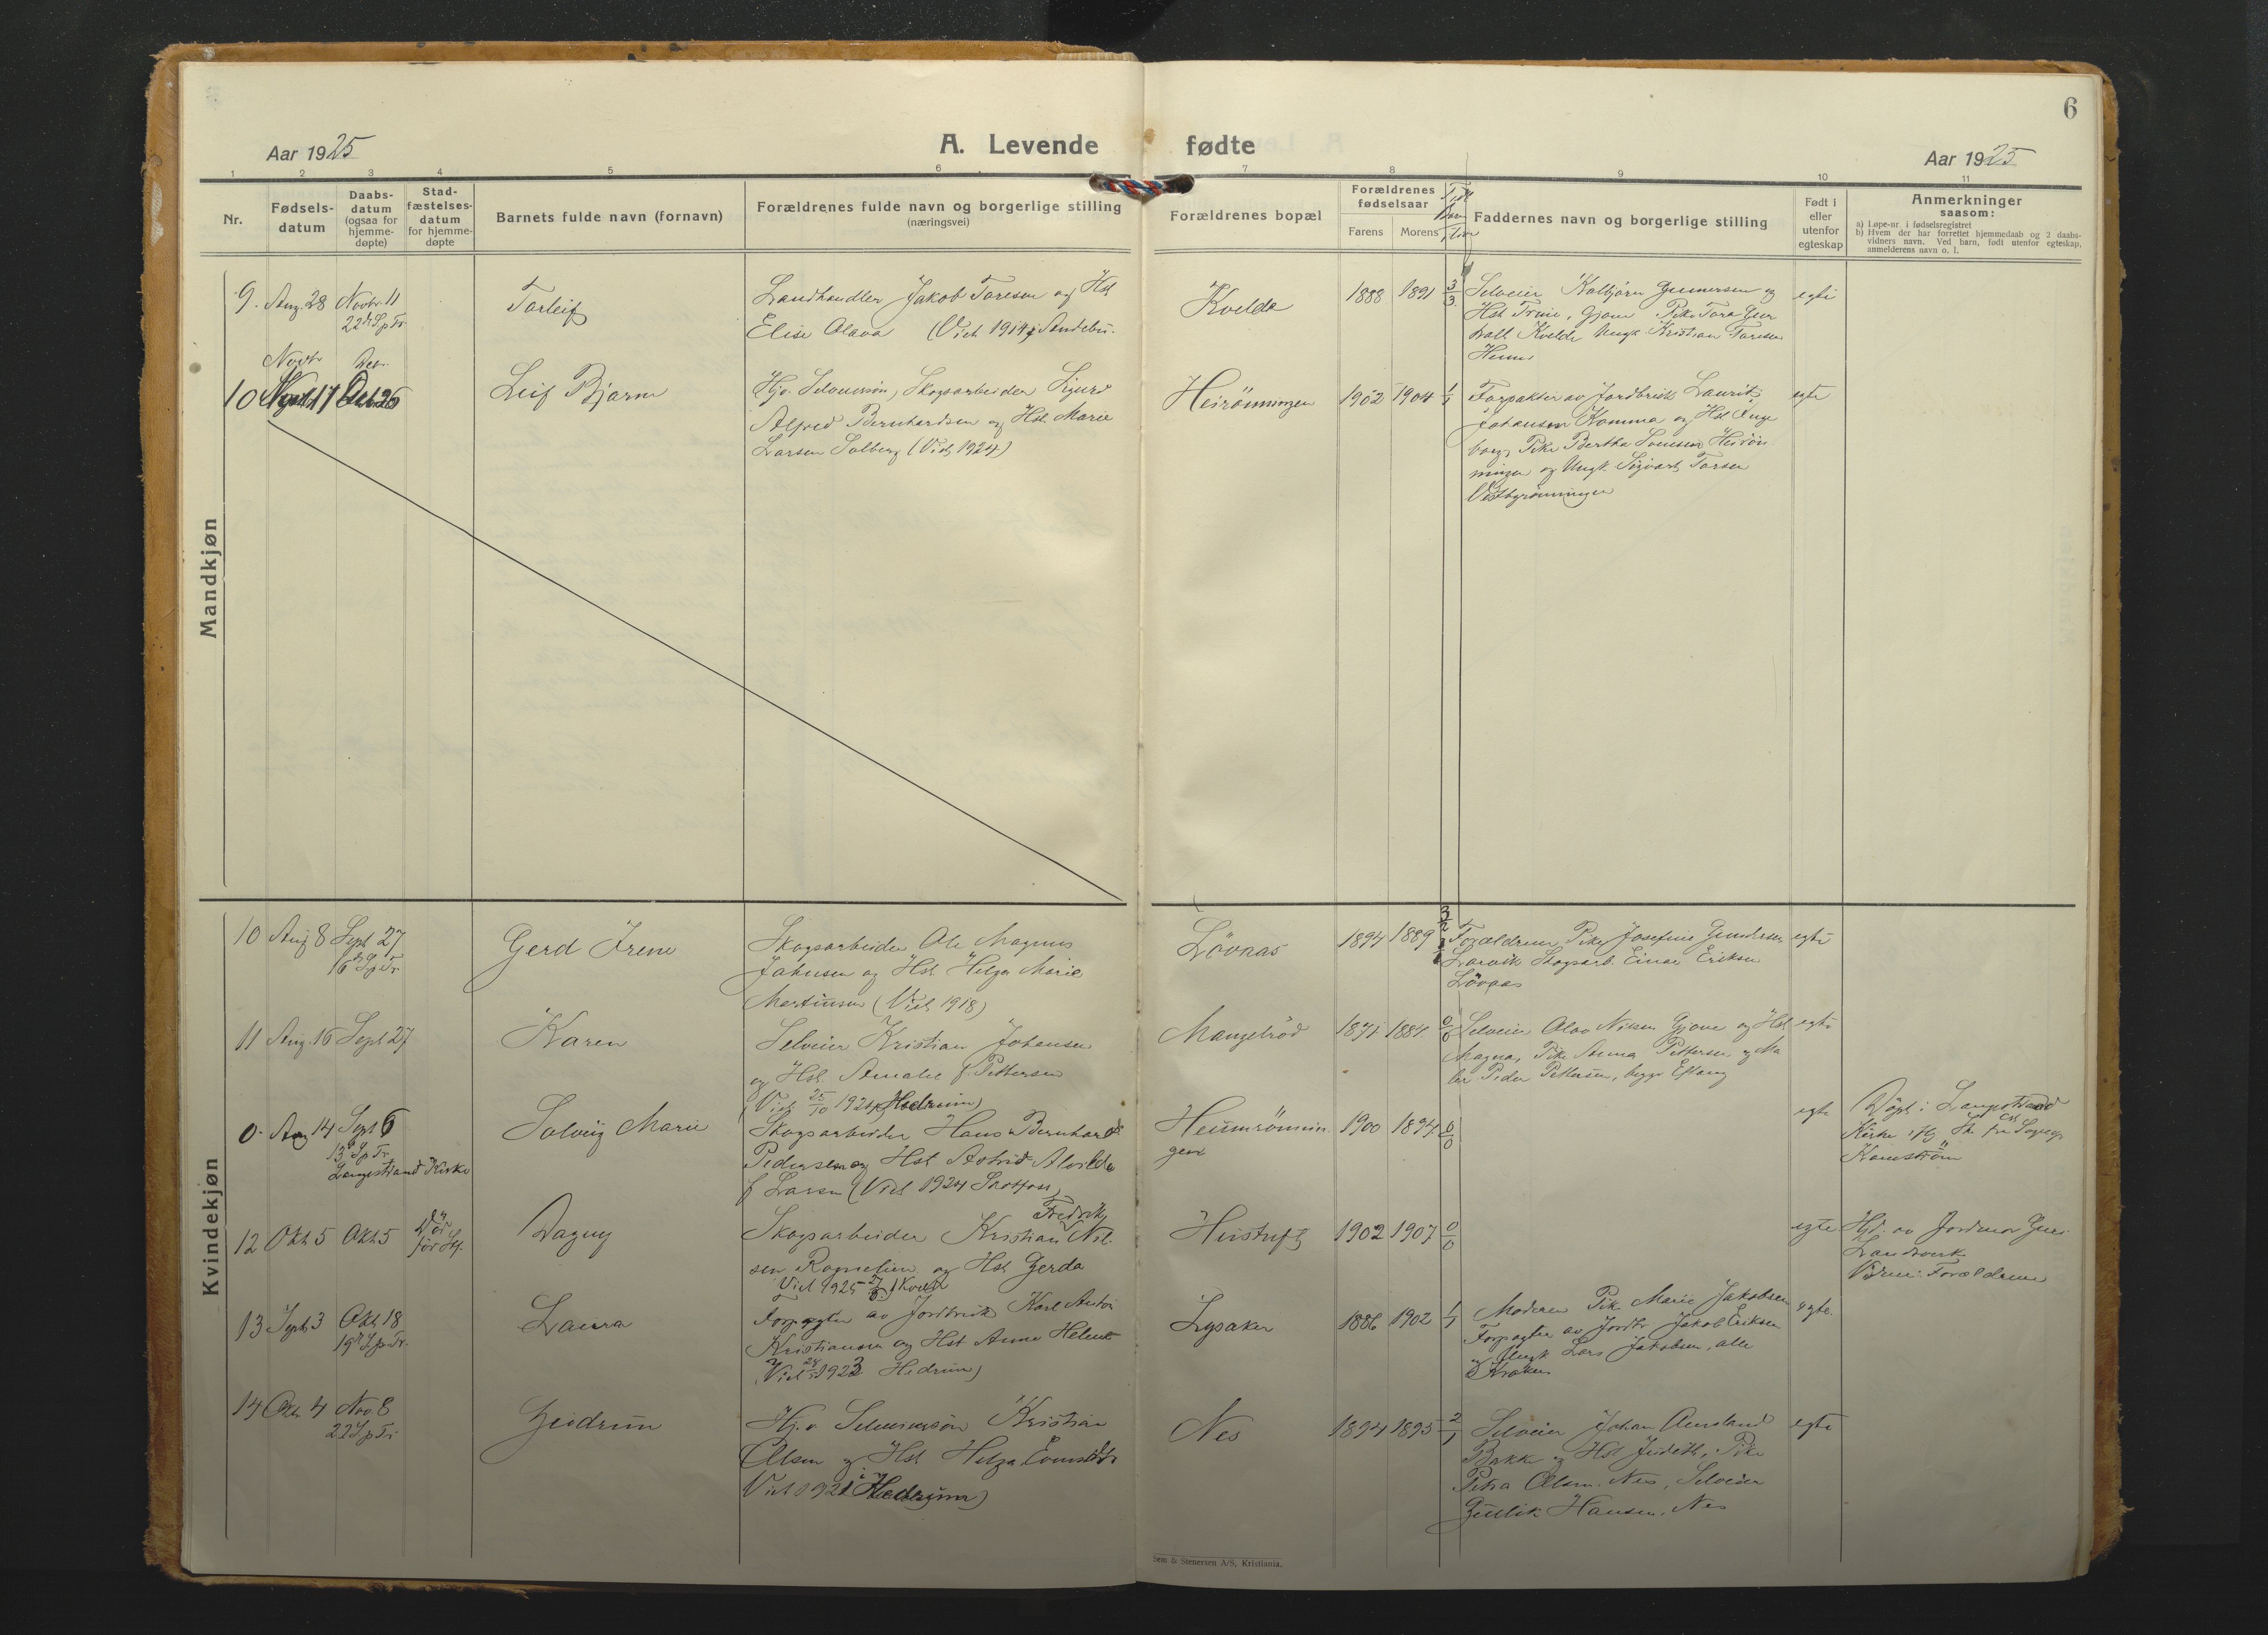 6
Aar 1925
A. Levende fødte
Aar 1925
1 2 3 4 5 6 7 8 9 10 11
Nr.
Fødsels-
datum
Daabs-
datum
(ogsaa for
hjemme-
døpte)
Stad-
fæstelses-
datum
for hjemme-
døpte
Barnets fulde navn (fornavn)
Forældrenes fulde navn og borgerlige stilling
(næringsvei)
Forældrenes bopæl
Forældrenes
fødselsaar
Farens Morens
Faddernes navn og borgerlige stilling
Født i
eller
utenfor
egteskap
Anmerkninger
saasom:
a) Løpe-nr. i fødselsregistret
b) Hvem der har forrettet hjemmedaab og 2 daabs-
vidners navn. Ved barn, født utenfor egteskap,
anmelderens navn o. l.
Mandkjøn
9. Aug. 28 Novbr. 11
22 d S. p Tr.
Torleif
Landhandler Jakob Toresen og Hst
Elise Olava (Viet 1914 i Andebu.
Kvelde
1888 1891 3/3
Selveier Kolbjørn Gunnersen og
Hst Trine, Gjone Pike Tora
Kvelde Ungk. Kristian Toresen
egte
Novbr Des.
10 17 26
Leif Bjarne
Hjv. Selveiersøn, Skogsarbeider Sigurd
Alfred Bernhardsen og Hst. Marie
Larsen Solberg (Viet 1924)
Heirönningen
1902 1904 1/1
Forpakter av Jordbruk Laurits
Johansen Komma og Hst Inge
borg, Pike Bertha Svensen Heirön
ningen og Ungk. Sigvart Torsen
Vestbyrönningen
egte
Kvindekjøn
10 Aug 8 Sept 27
16 d S. p Tr.
Gerd Irene
Skogsarbeider Ole Magnus
Johnsen og Hst. Helga Marie
Martinsen (Viet 1918)
Lövnas
1894 1889
Forældrene Pike Josefine Gundersen
Larvik Skogsarb. Einar Eriksen
Lövnas
egte
11 Aug. 16 Sept 27
Karen
Selveier Kristian Johansen
og Hst. Amalie f. Pettersen
(Viet 25/10 1924 Hedrum)
Mangelröd
1871 1884 0/0
Selveier Olav Nilsen Gjone og Hst
Magna, Pike Anna Pettersen og Ma
ler Peder Pettersen, begge Eftang
egte
0. Aug 14 Sept 6
13 d S p Tr.
Langestrand Kirke
Solveig Marie
Skogsarbeider Hans Bernhard
Pedersen og Hst Astrid Alvilde
f Larsen (Viet 1924
Heumrönnin
gen
1900 1894 0/0
egte
Döpt i Langestrand
Kirke
12 Okt 5 Okt 5
Död
för Stf.
Dagny
Fredrik
Skogsarbeider Kristian Nil
sen og Hst Gerda
Viet 1925
1902 1907 0/0
egte
Hjd. av Jordmor
Landsverk
Forældrene
13 Sept 3 Okt 18
19 d S. p Tr.
Laura
Forpagter av Jordbruk Karl Anton
Kristiansen og Hst Anne Helene
(Viet 1923 Hedrum)
Lysaker
1886 1902 1/1
Moderen Pike Marie Jakobsen
Forpagter av Jordbr Jakob Eriksen
og Ungk Lars Jakobsen, alle
egte.
14 Okt. 4 Nov 8
22 S p Tr
Gudrun
Hj. v Selveiersøn Kristian
Olsen og Hst Helga
Viet 1921 i Hedrum)
Nes
1894 1895 2/1
Selveier Johan Amland
Bakke og Hst Judeth, Pike
Petra Olsen. Nes, Selveier
Gullik Hansen, Nes
egte
Sem & Stenersen A/S, Kristiania.